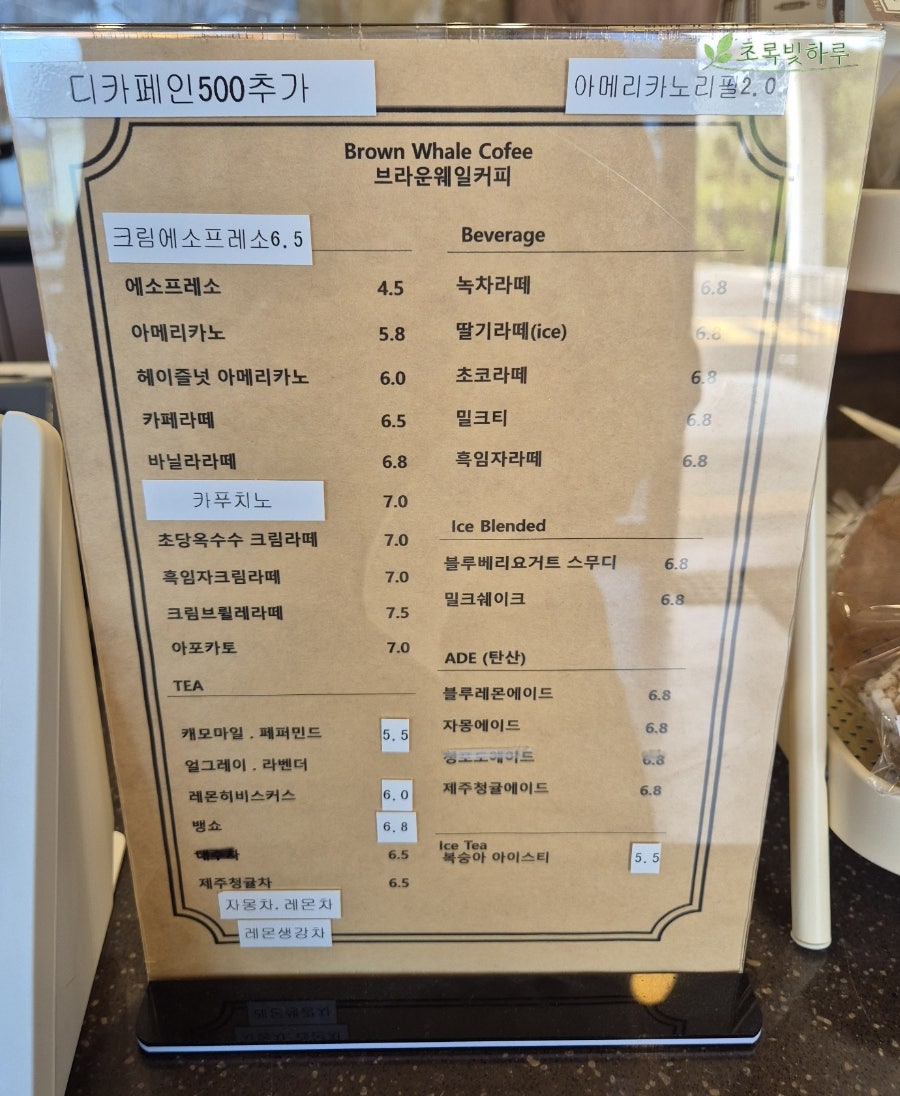 초록빛하루
디카페인500추가
아메리카노리필2.0
Brown Whale Cofee
브라운웨일커피
크림에소프레소6.5
에소프레소 4.5
아메리카노 5.8
헤이즐넛 아메리카노 6.0
카페라떼 6.5
바닐라라떼 6.8
카푸치노 7.0
초당옥수수 크림라떼 7.0
흑임자크림라떼 7.0
크림브륄레라떼 7.5
아포카토 7.0
TEA
캐모마일 . 페퍼민드 5.5
얼그레이 . 라벤더
레몬히비스커스 6.0
뱅쇼 6.8
6.5
제주청귤차 6.5
자몽차.레몬차
레몬생강차
Beverage
녹차라떼 6.8
딸기라떼(ice) 6.8
초코라떼 6.8
밀크티 6.8
흑임자라떼 6.8
Ice Blended
블루베리요거트 스무디 6.8
밀크쉐이크 6.8
ADE (탄산)
블루레몬에이드 6.8
자몽에이드 6.8
청포도에이드 6.8
제주청귤에이드 6.8
Ice Tea
복숭아 아이스티 5.5